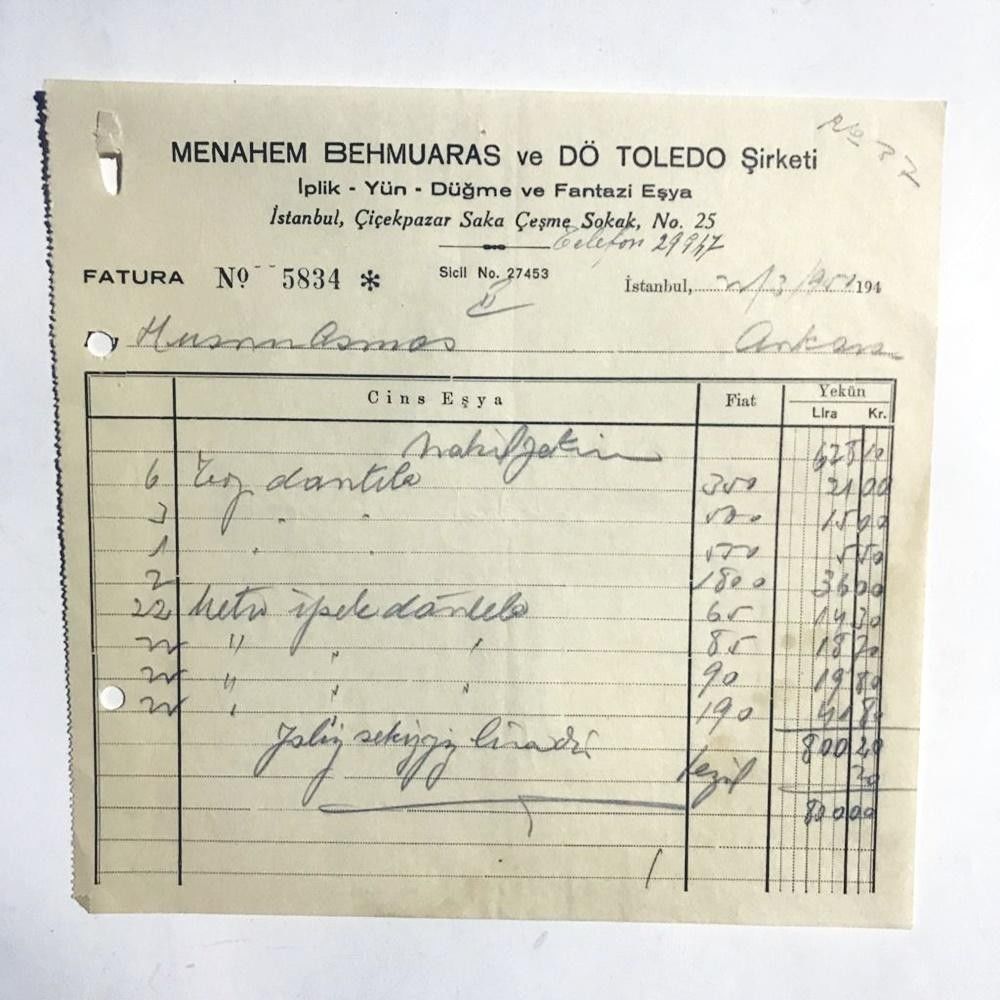 MENAHEM BEHMUARAS ve DÖ TOLEDO Şirketi
İplik - Yün - Düğme ve Fantazi Eşya
İstanbul, Çiçekpazar Saka Çeşme Sokak, No. 25
Telefon 29947
FATURA No 5834 * Sicil No. 27453 İstanbul, 194
II
Ankara
Cins Eşya Fiat Yekün
Lira Kr.
Nakil yekün 628 10
6 dantela 350 21 00
3 " " 500 15 00
1 " " 550 5 50
2 1800 36 00
22 Metro ipek dantela 65 14 30
22 " " " 85 18 70
22 " " " 90 19 80
22 " 190 41 80
Yalnız sekizyüz liradır 800 20
tenzil 20
800 00